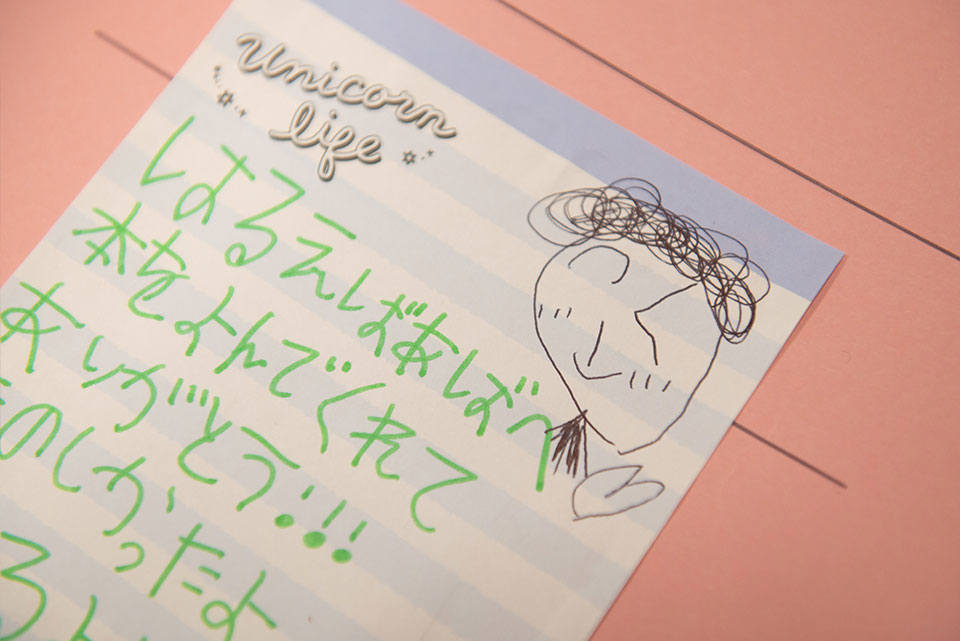 Unicorn
life
しよるえしばあしずへ
本をよんでくれて
ありがとう!!!
のしかったよ